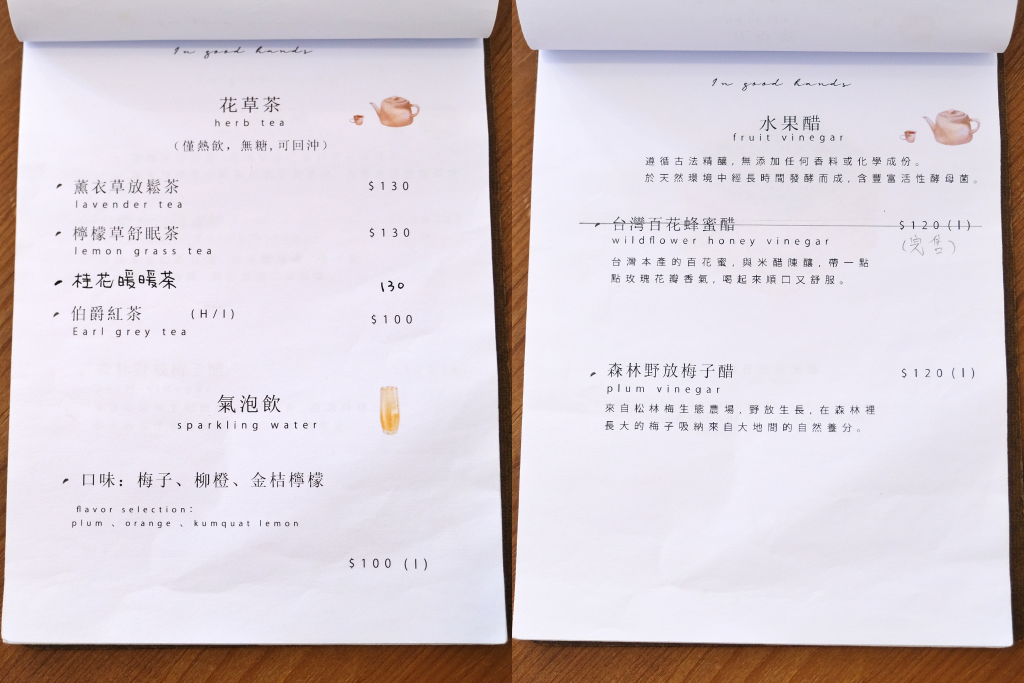 In good hands
花草茶
herb tea
（僅熱飲，無糖,可回沖）
薰衣草放鬆茶 $130
lavender tea
檸檬草舒眠茶 $130
lemon grass tea
桂花暖暖茶 130
伯爵紅茶 (H/I) $100
Earl grey tea
氣泡飲
sparkling water
口味：梅子、柳橙、金桔檸檬
flavor selection:
plum 、orange 、kumquat lemon
$100 (I)
In good hands
水果醋
fruit vinegar
遵循古法精釀,無添加任何香料或化學成份。
於天然環境中經長時間發酵而成,含豐富活性酵母菌。
台灣百花蜂蜜醋 $120(I)
wildflower honey vinegar (完售)
台灣本產的百花蜜,與米醋陳釀,帶一點
點玫瑰花瓣香氣,喝起來順口又舒服。
森林野放梅子醋 $120(I)
plum vinegar
來自松林梅生態農場,野放生長,在森林裡
長大的梅子吸納來自大地間的自然養分。